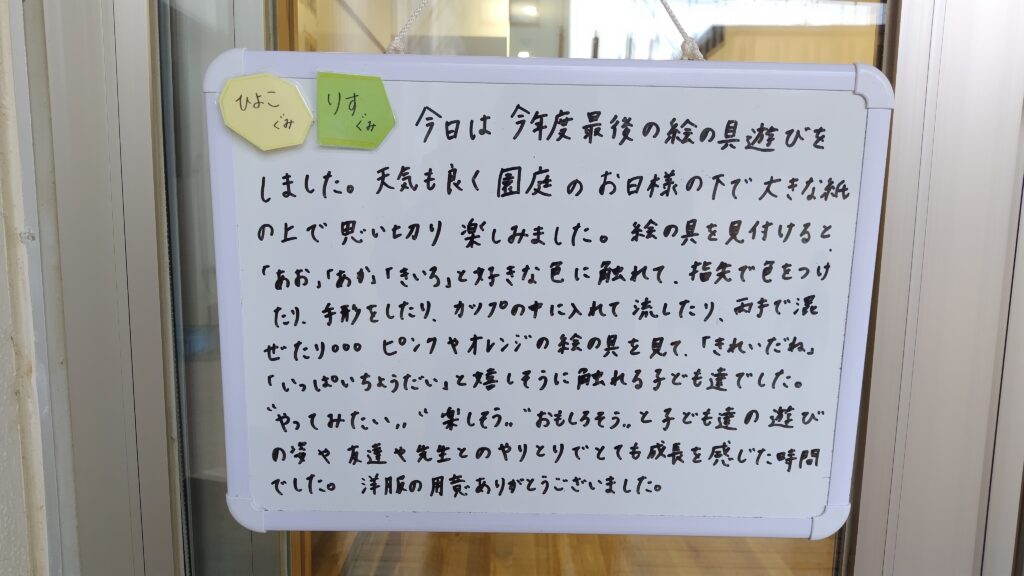 ひよこ
ぐみ
りす
ぐみ
今日は 今年度 最後の絵の具遊びを
しました。天気も良く 園庭の お日様の下で 大きな紙
の上で 思い切り 楽しみました。 絵の具を見付けると、
「あお」「あか」「きいろ」と好きな色に触れて、指先で色をつけ
たり、手形をしたり、カップの中に入れて 流したり、両手で混
ぜたり。。。 ピンクやオレンジの絵の具を見て、「きれいだね」
「いっぱいちょうだい」と嬉しそうに触れる子ども達でした。
“やってみたい〟“楽しそう〟“おもしろそう〟と子ども達の遊び
の姿や 友達や先生とのやりとりでとても成長を感じた時間
でした。 洋服の用意ありがとうございました。